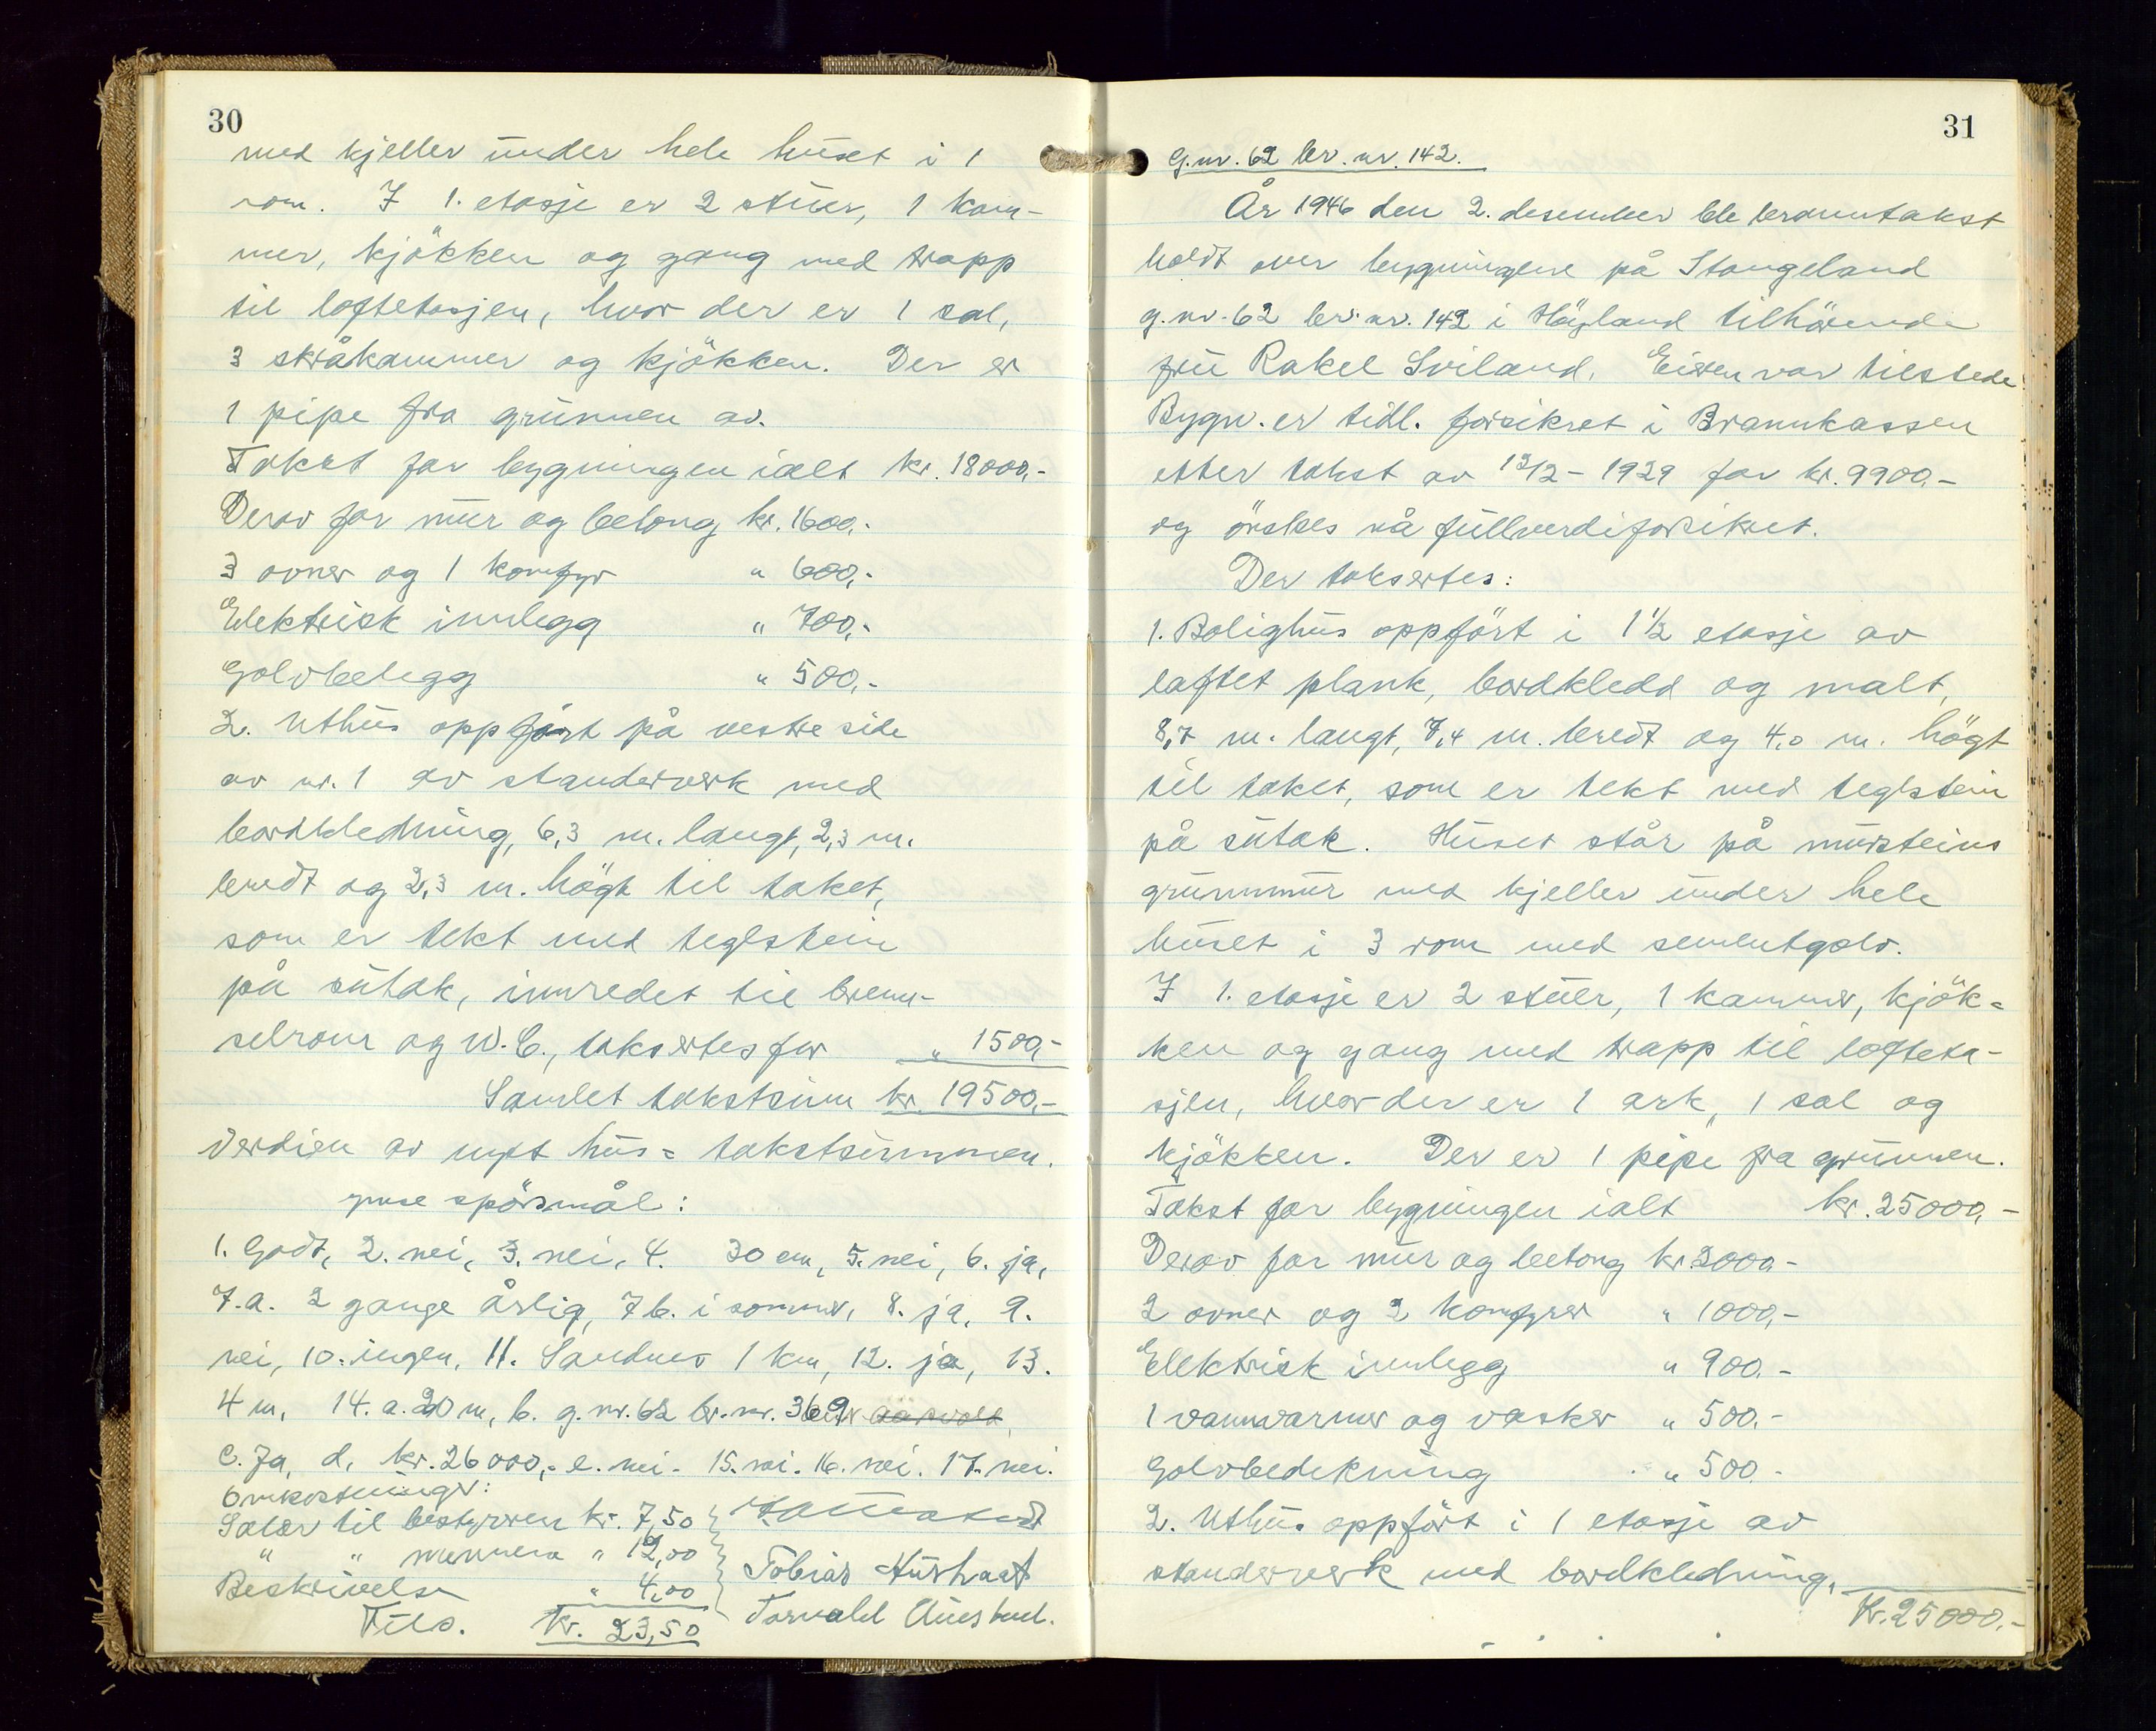 30
med kjeller under hele huset i 1
rom. I 1. etasje er 2 stuer, 1 kam-
mer, kjökken og gang med trapp
til loftetasjen, hvor der er 1 sal,
3 skråkammer og kjökken. Der er
1 pipe fra grunnen av.
Takst for bygningen ialt kr. 18000,-
Derav for mur og betong kr. 1600,-
3 ovner og 1 komfyr " 600,-
Elektrisk innlegg " 700,-
Golvbelegg " 500,-
2. Uthus oppfört på vestre side
av nr. 1 av standerverk med
bordkledning, 6,3 m. langt, 2,3 m.
bredt og 2,3 m. högt til taket,
som er tekt med teglstein
på sutak, innredet til bren-
selrom og W.C., taksertes for " 1500,-
Samlet takstsum kr. 19500,-
Verdien av nytt hus = takstsummen.
spörsmål:
1. Godt, 2. nei, 3. nei, 4. 30 cm, 5. nei, 6. ja,
7.a. 2 gange årlig, 7 b. i sommer, 8. ja, 9.
nei, 10. ingen, 11. Sandnes 1 km, 12. ja, 13.
4 m, 14. a. 20 m, b. g.nr. 62 br.nr. 369
c. Ja, d. kr. 26000,- e. nei - 15. nei. 16. nei. 17. nei.
Omkostninger:
Salær til bestyreren kr. 7,50
" " mennene " 12,00
Tobias
Beskrivelse " 4,00
Torvald
Tils. kr. 23,50
31
G.nr. 62 br.nr. 142.
År 1946 den 2. desember ble branntakst
holdt over bygningene på Stangeland
g.nr. 62 br.nr. 142 i Höyland tilhörende
fru Rakel Sviland. Eieren var tilstede.
Bygn. er tidl. forsikret i Brannkassen
etter takst av 12/12 - 1929 for kr. 9900,-
og önskes nå fullverdiforsikret.
Der taksertes:
1. Bolighus oppfört i 1 1/2 etasje av
laftet plank, bordkledd og malt,
8,7 m. langt, 7,4 m. bredt og 4,0 m. högt
til taket, som er tekt med teglstein
på sutak. Huset står på mursteins
grunnmur med kjeller under hele
huset i 3 rom med sementgolv.
I 1. etasje er 2 stuer, 1 kammer, kjök=
ken og gang med trapp til lofteta-
sjen, hvor der er 1 ark, 1 sal og
kjökken. Der er 1 pipe fra grunnen.
Takst for bygningen ialt kr. 25000,-
Derav for mur og betong kr. 3000,-
2 ovner og 2 komfyrer " 1000,-
Elektrisk innlegg " 900,-
1 vannvarmer og vasker " 500,-
Golvbedekning " 500,-
2. Uthus oppfört i 1 etasje av
standerverk med bordkledning,
Kr. 25000,-